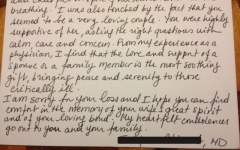 breathing. I was also touched by the fact that you
seemed to be a very loving couple. You were highly
supportive of her, asking the right questions with
calm, care and concern. From my experience as a
physician, I find that the love and support of a
spouse or a family member is the most soothing
gift, bringing peace and serenity to those
critically ill.
I am sorry for your loss and I hope you can find
comfort in the memory of your wife's great spirit
and of your loving bond. My heartfelt condolences
go out to you and your family.
MD